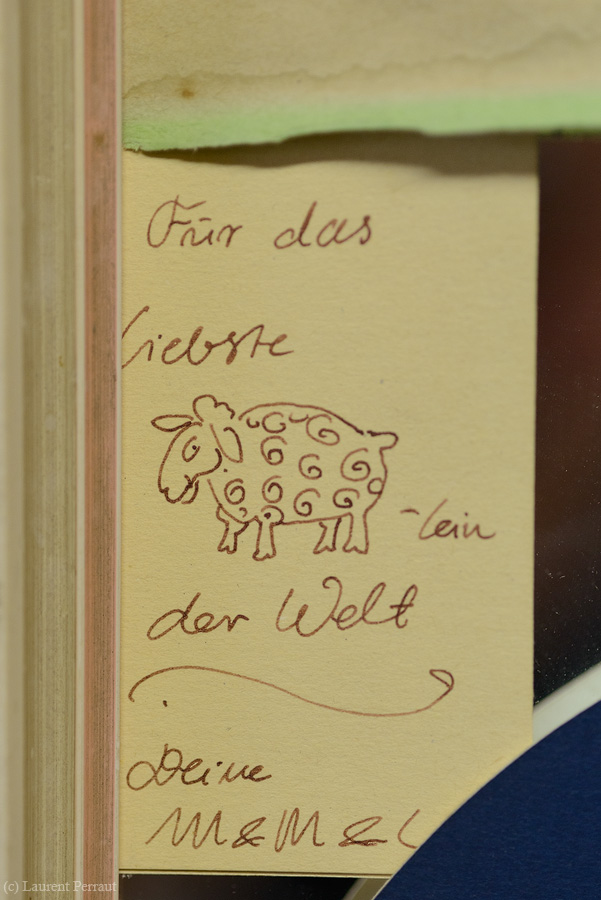 Für das
liebste
-lein
der Welt
Deine
M & M & L
(c) Laurent Perraut